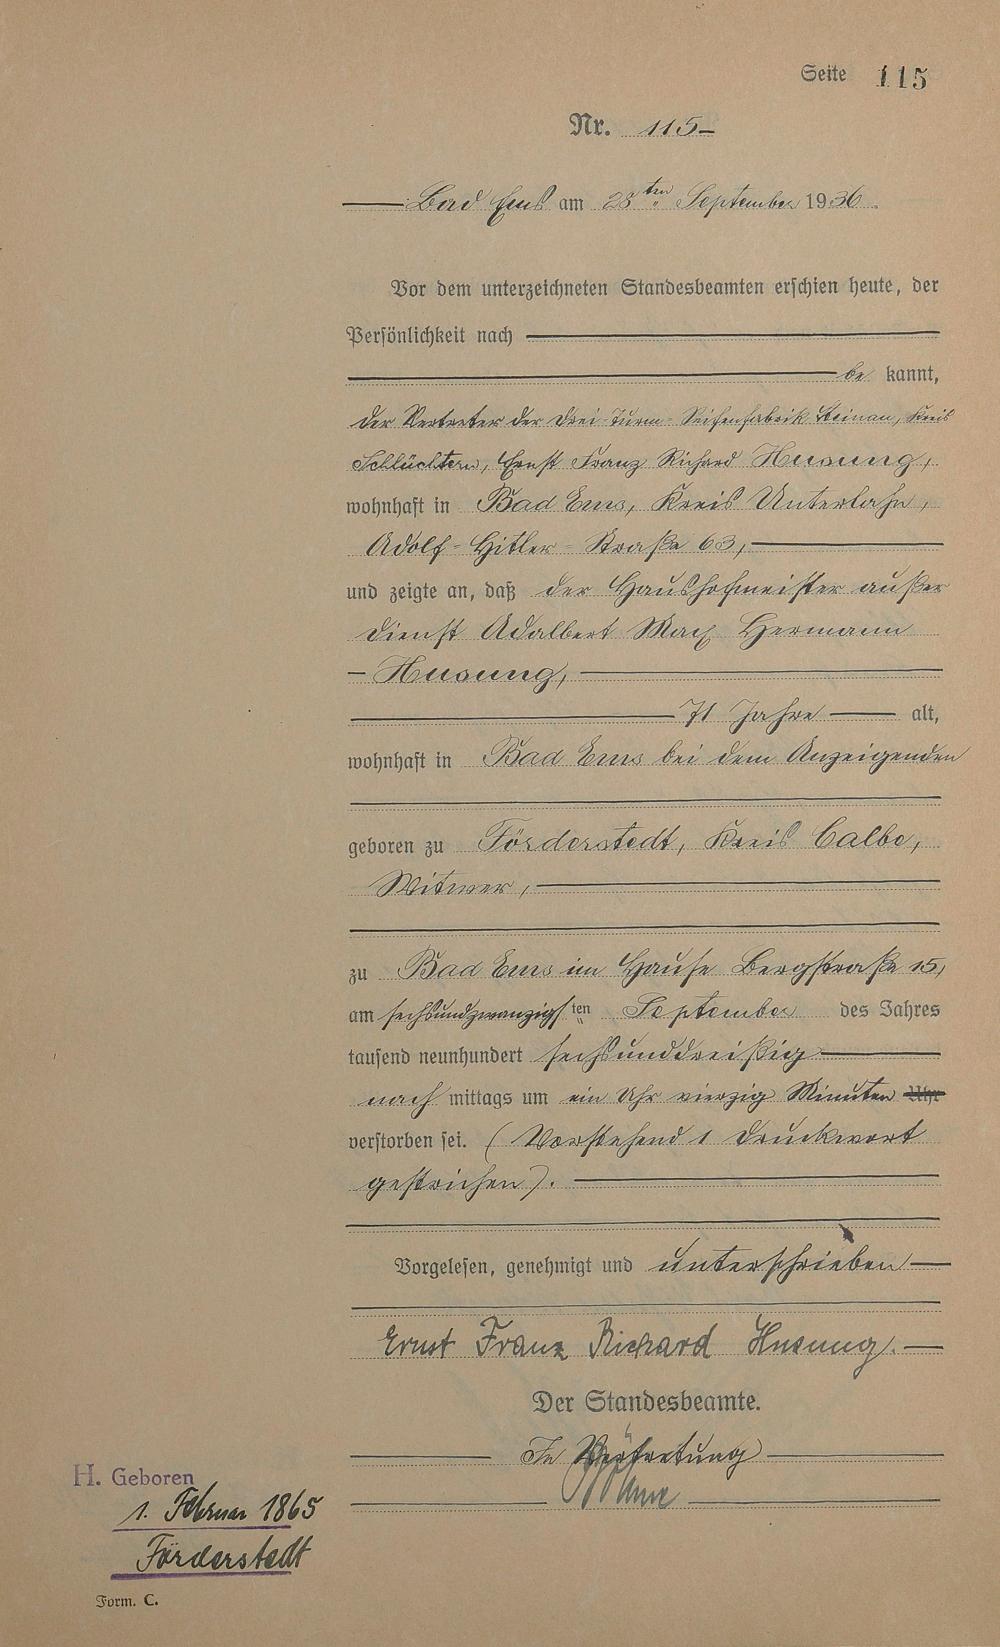 Seite 115
Nr. 115-
Bad Ems am 28ten September 1936.
Vor dem unterzeichneten Standesbeamten erschien heute, der
Persönlichkeit nach
be kannt,
der Vertreter der Drei-Turm-Seifenfabrik Steinau, Kreis
Schlüchtern, Ernst Franz Richard Husung,
wohnhaft in Bad Ems, Kreis Unterlahn,
Adolf-Hitler-Straße 63,
und zeigte an, daß der Haushofmeister außer
Dienst Adalbert Max Hermann
- Husung,
71 Jahre alt,
wohnhaft in Bad Ems bei dem Anzeigenden
geboren zu Förderstedt, Kreis Calbe,
Witwer,
zu Bad Ems im Hause Bergstraße 15,
am sechsundzwanzigsten September des Jahres
tausend neunhundert sechsunddreißig
nach mittags um ein Uhr vierzig Minuten Uhr
verstorben sei. (Vorstehend 1 Druckwort
gestrichen).
Vorgelesen, genehmigt und unterschrieben
Ernst Franz Richard Husung.
Der Standesbeamte.
In Vertretung
H. Geboren
1. Februar 1865
Förderstedt
Form. C.